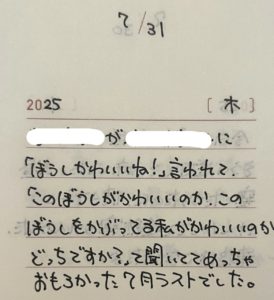 7/31
2025 [木]
が、に
「ぼうしかわいいね！」言われて、
「このぼうしがかわいいのか、この
ぼうしをかぶってる私がかわいいのか
どっちですか？」って聞いててめっちゃ
おもろかった7月ラストでした。